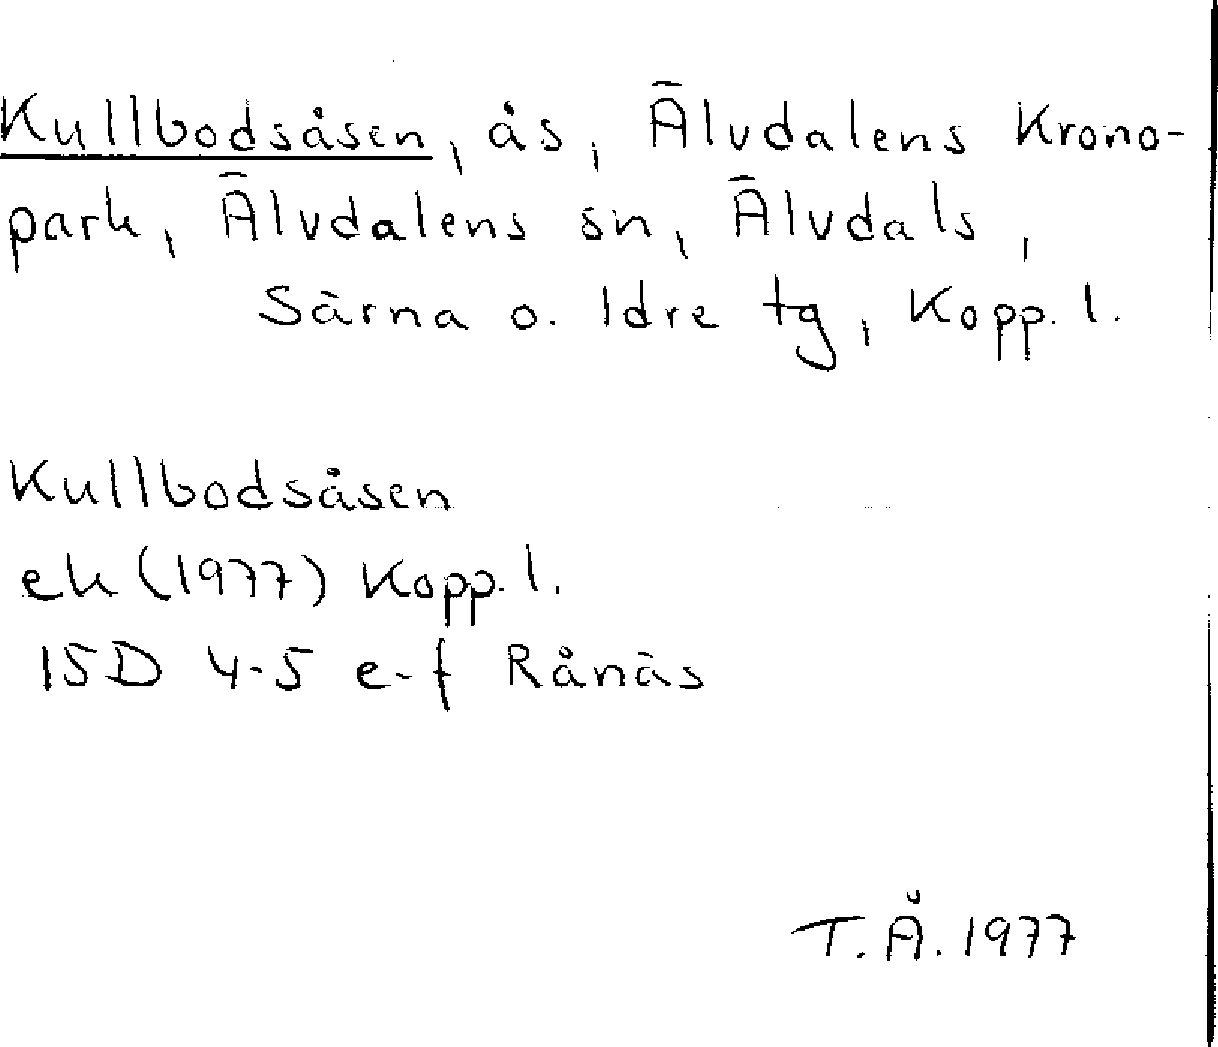 Kullbodsåsen, ås, Älvdalens Krono-
park, Älvdalens sn, Älvdals,
Särna o. Idre tg, Kopp. l.
Kullbodsåsen
ek (1977) Kopp. l.
15D 4-5 e-f Rånäs
T. Å. 1977